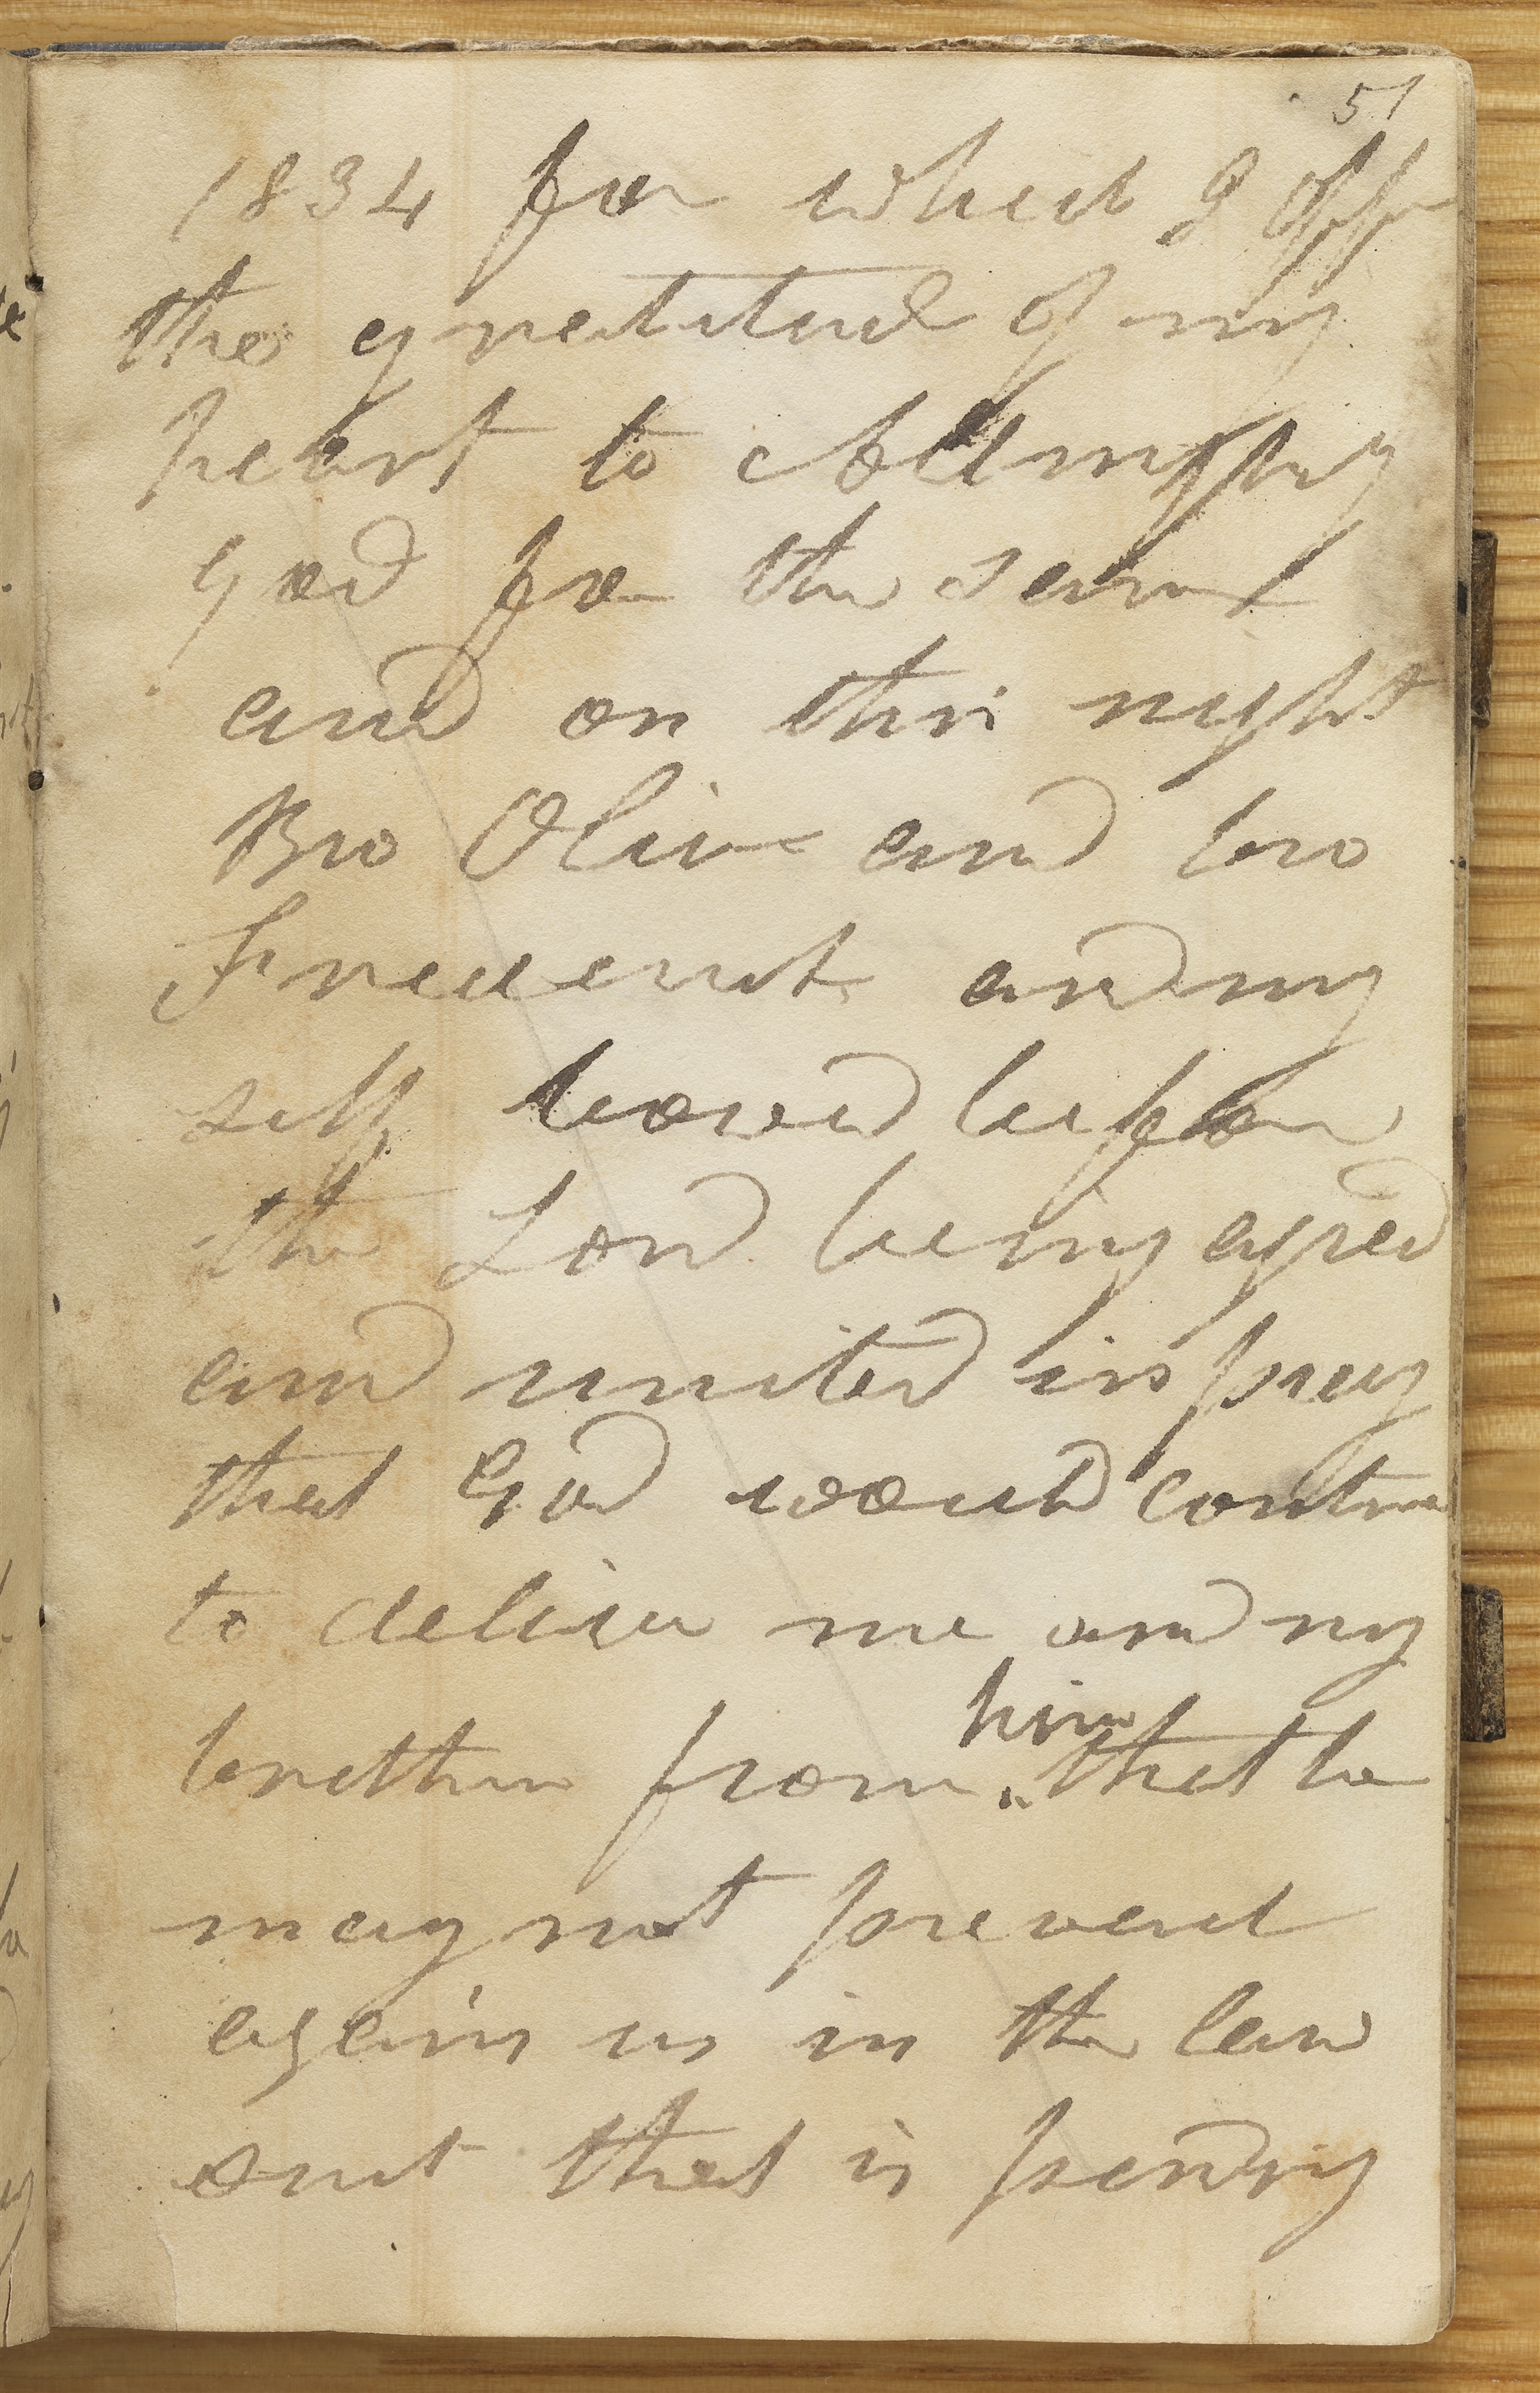 51
1834 for which I offer
the gratitude of my
heart to Allmighty
God for the same
and on this night
Bro Oliver and bro
Frederick and my
self bowed before
the Lord being agred
and united in pray
that God would continue
to deliver me and my
brethren from him that he
may not prevail
again us in the law
sut that is pending